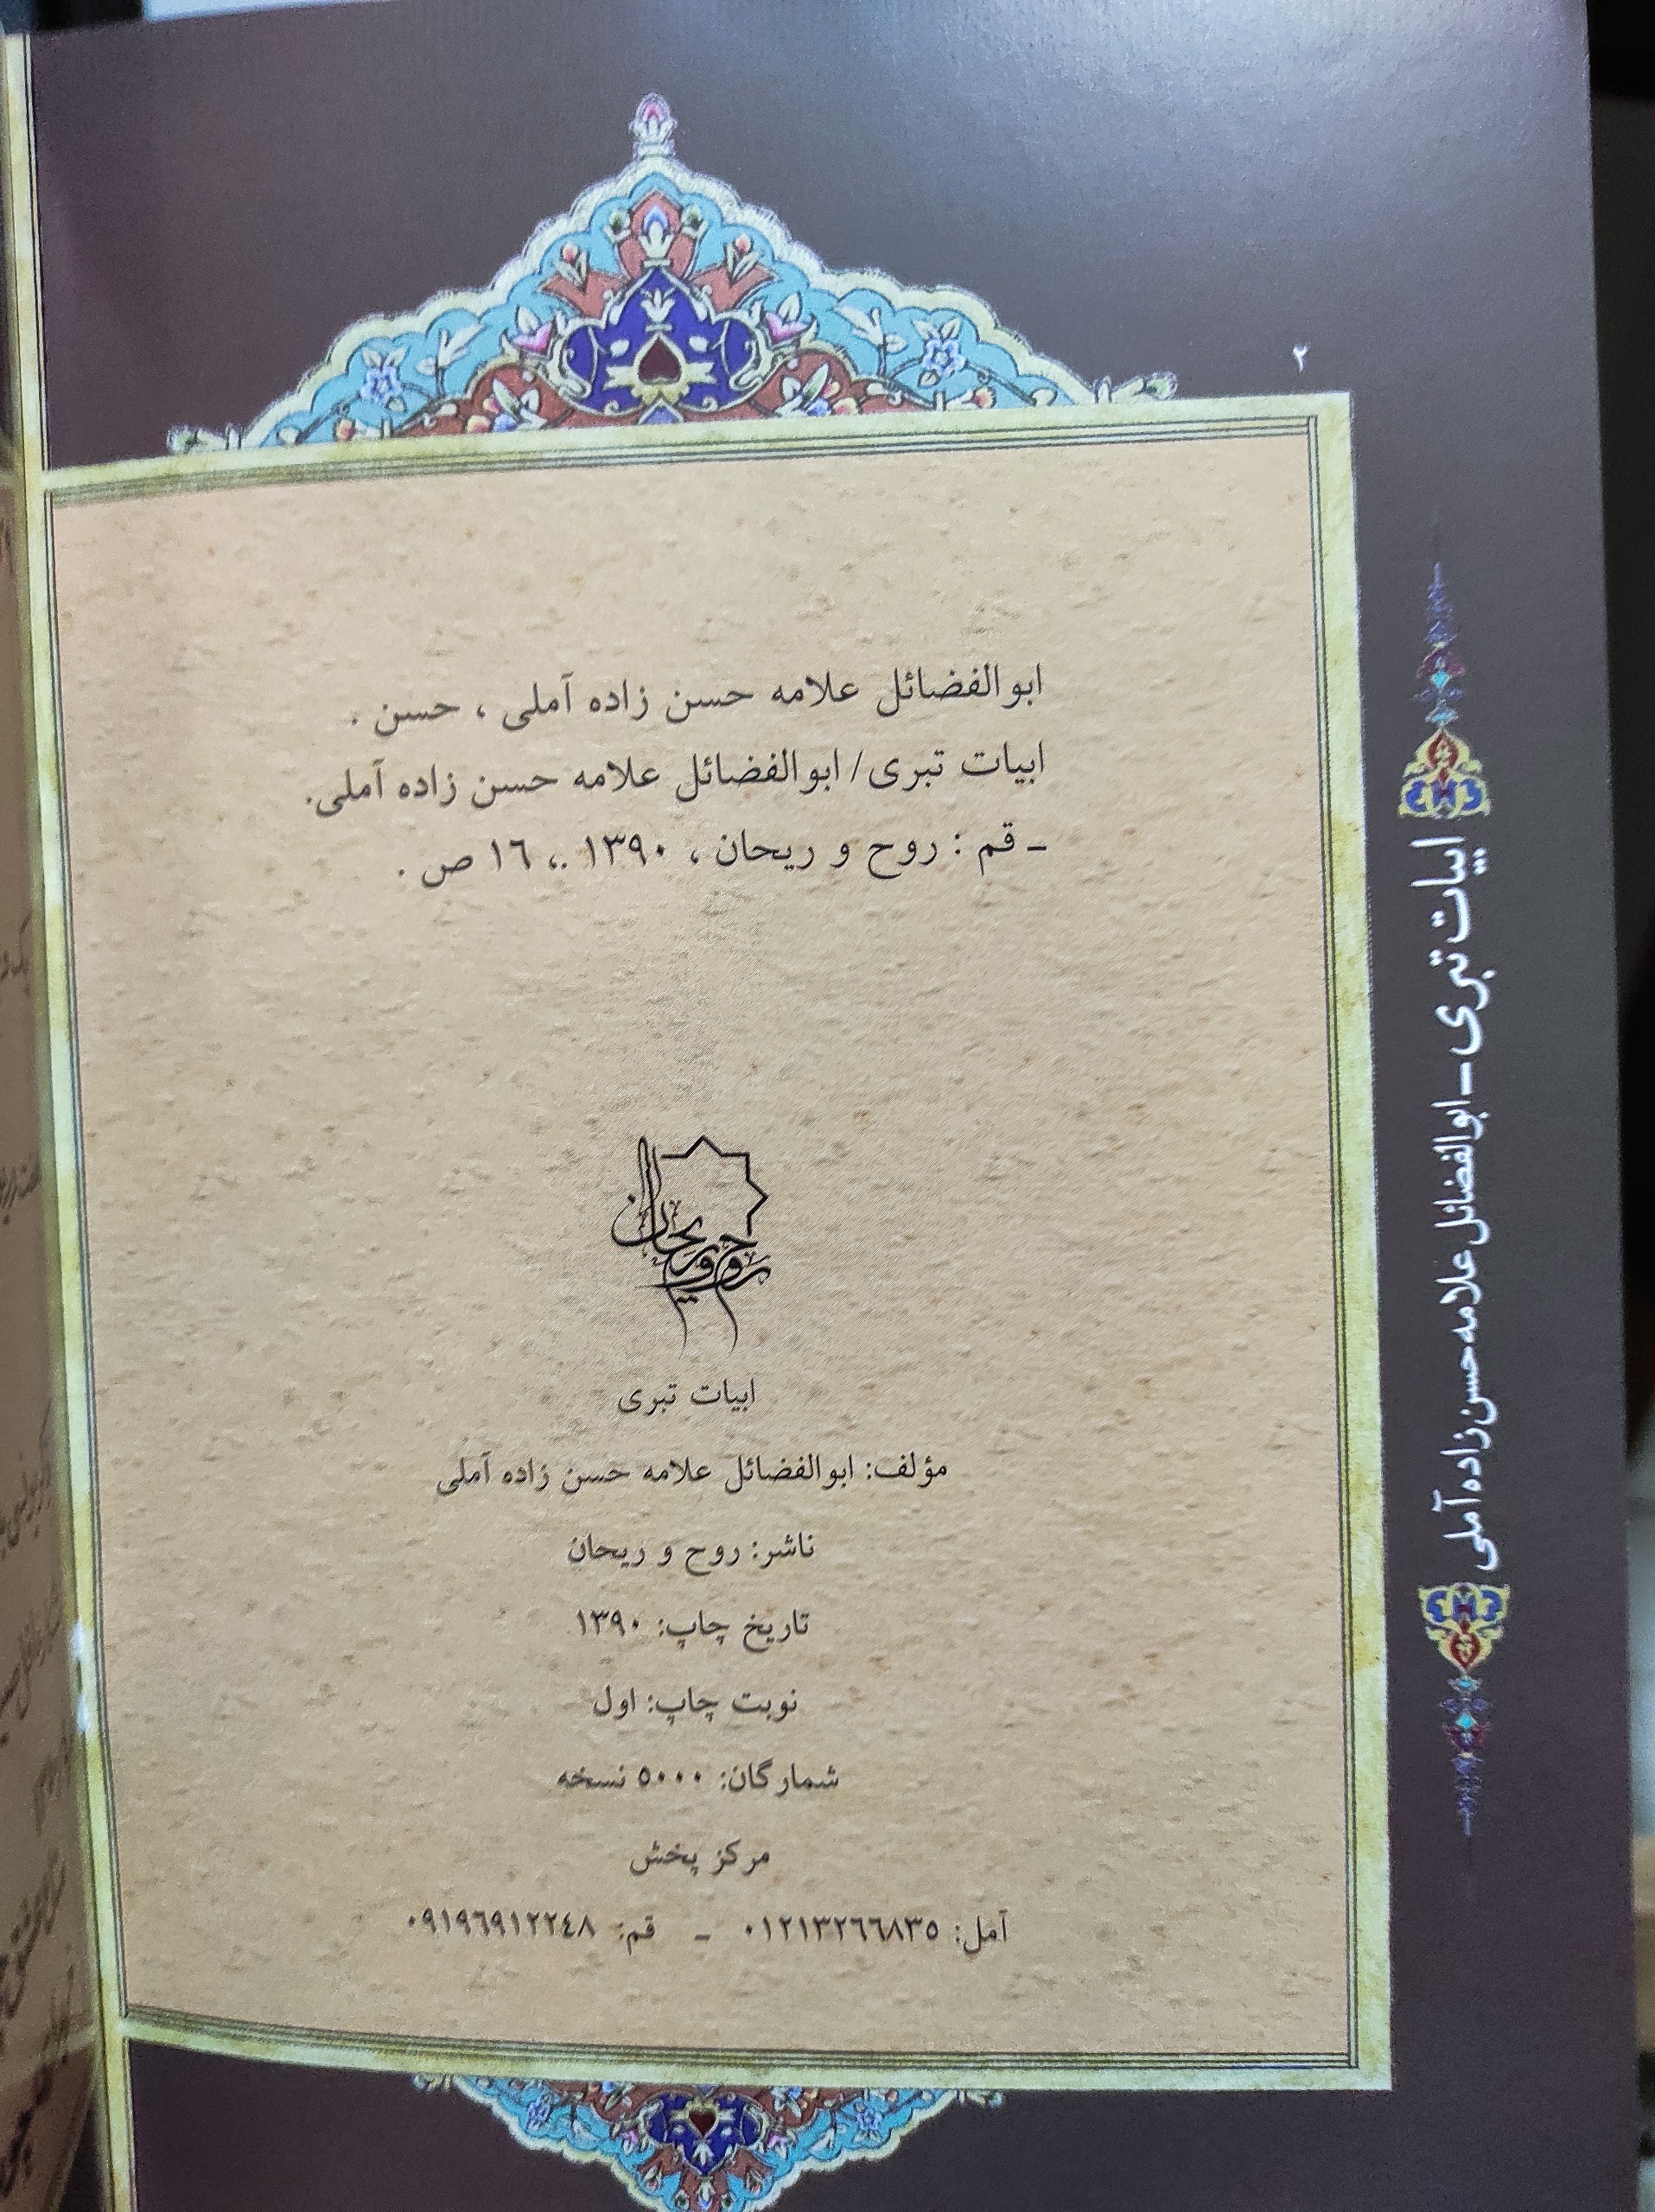 ٢
ابوالفضائل علامه حسن زاده آملی ، حسن .
ابیات تبری/ ابوالفضائل علامه حسن زاده آملی.
ـ قم : روح و ریحان ، ١٣٩٠ .، ١٦ ص .
روح و ریحان
ابیات تبری
مؤلف: ابوالفضائل علامه حسن زاده آملی
ناشر: روح و ریحان
تاریخ چاپ: ١٣٩٠
نوبت چاپ: اول
شمارگان: ٥٠٠٠ نسخه
مرکز پخش
آمل: ٠١٢١٣٢٦٦٨٣٥ ـ قم: ٠٩١٩٦٩١٢٢٤٨
ابیات تبری ـ ابوالفضائل علامه حسن زاده آملی